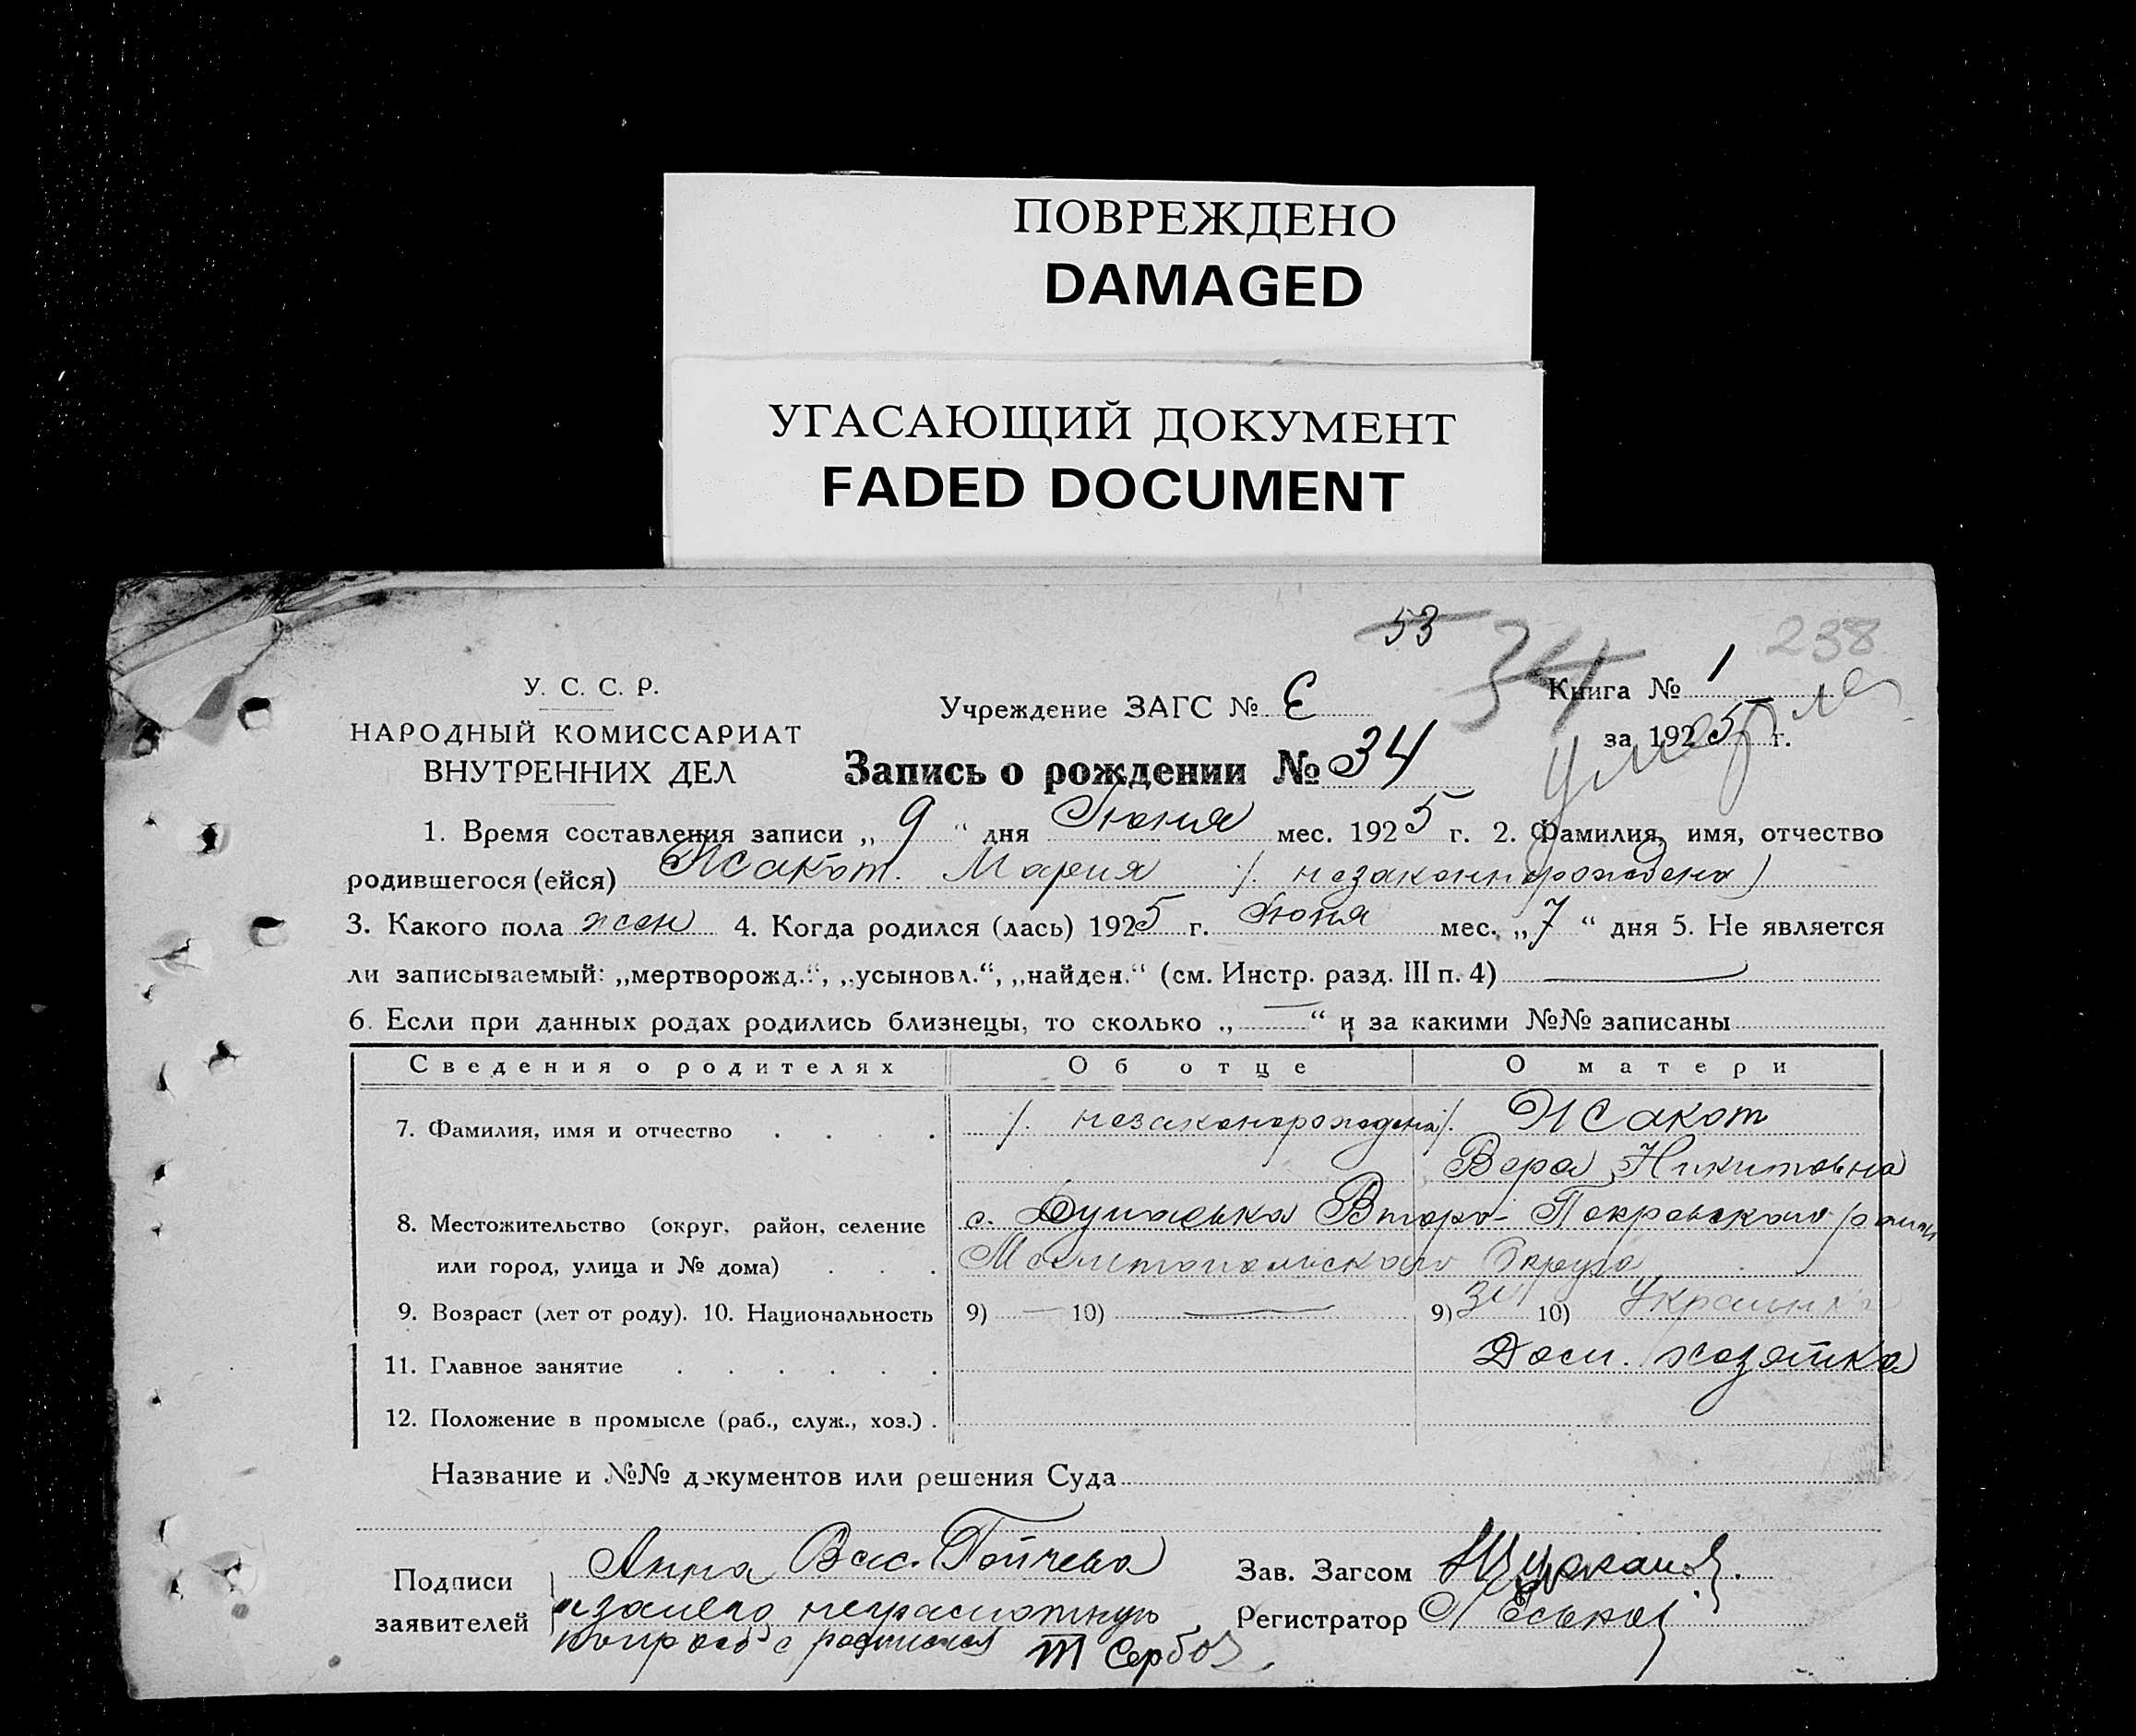 ПОВРЕЖДЕНО
DAMAGED
УГАСАЮЩИЙ ДОКУМЕНТ
FADED DOCUMENT
53
34
238
У. С. С. Р.
НАРОДНЫЙ КОМИССАРИАТ
ВНУТРЕННИХ ДЕЛ
Учреждение ЗАГС № Є
Книга № 1
за 1925 г.
умерла
Запись о рождении № 34
1. Время составления записи „ 9 “ дня Июня мес. 1925 г. 2. Фамилия, имя, отчество
родившегося (ейся) Исакот. Мария /. незаконнорождена)
3. Какого пола жен 4. Когда родился (лась) 1925 г. Июня мес. „ 7 “ дня 5. Не является
ли записываемый: „мертворожд.“, „усыновл.“, „найден.“ (см. Инстр. разд. III п. 4)
6. Если при данных родах родились близнецы, то сколько „ — “ и за какими №№ записаны
Сведения о родителях Об отце О матери
7. Фамилия, имя и отчество /. незаконорождена/. Исакот
Вера Никитовна
8. Местожительство (округ, район, селение с. Втора- Покровского района
или город, улица и № дома) Мелитопольского Округа
9. Возраст (лет от роду). 10. Национальность 9) — 10) — 9) 10) Украинка
11. Главное занятие Дом. хозяйка
12. Положение в промысле (раб., служ., хоз.)
Название и №№ документов или решения Суда
Подписи заявителей Анна Вас. Тойчева
негоамотную
росписался Т Сербов
Зав. Загсом
Регистратор